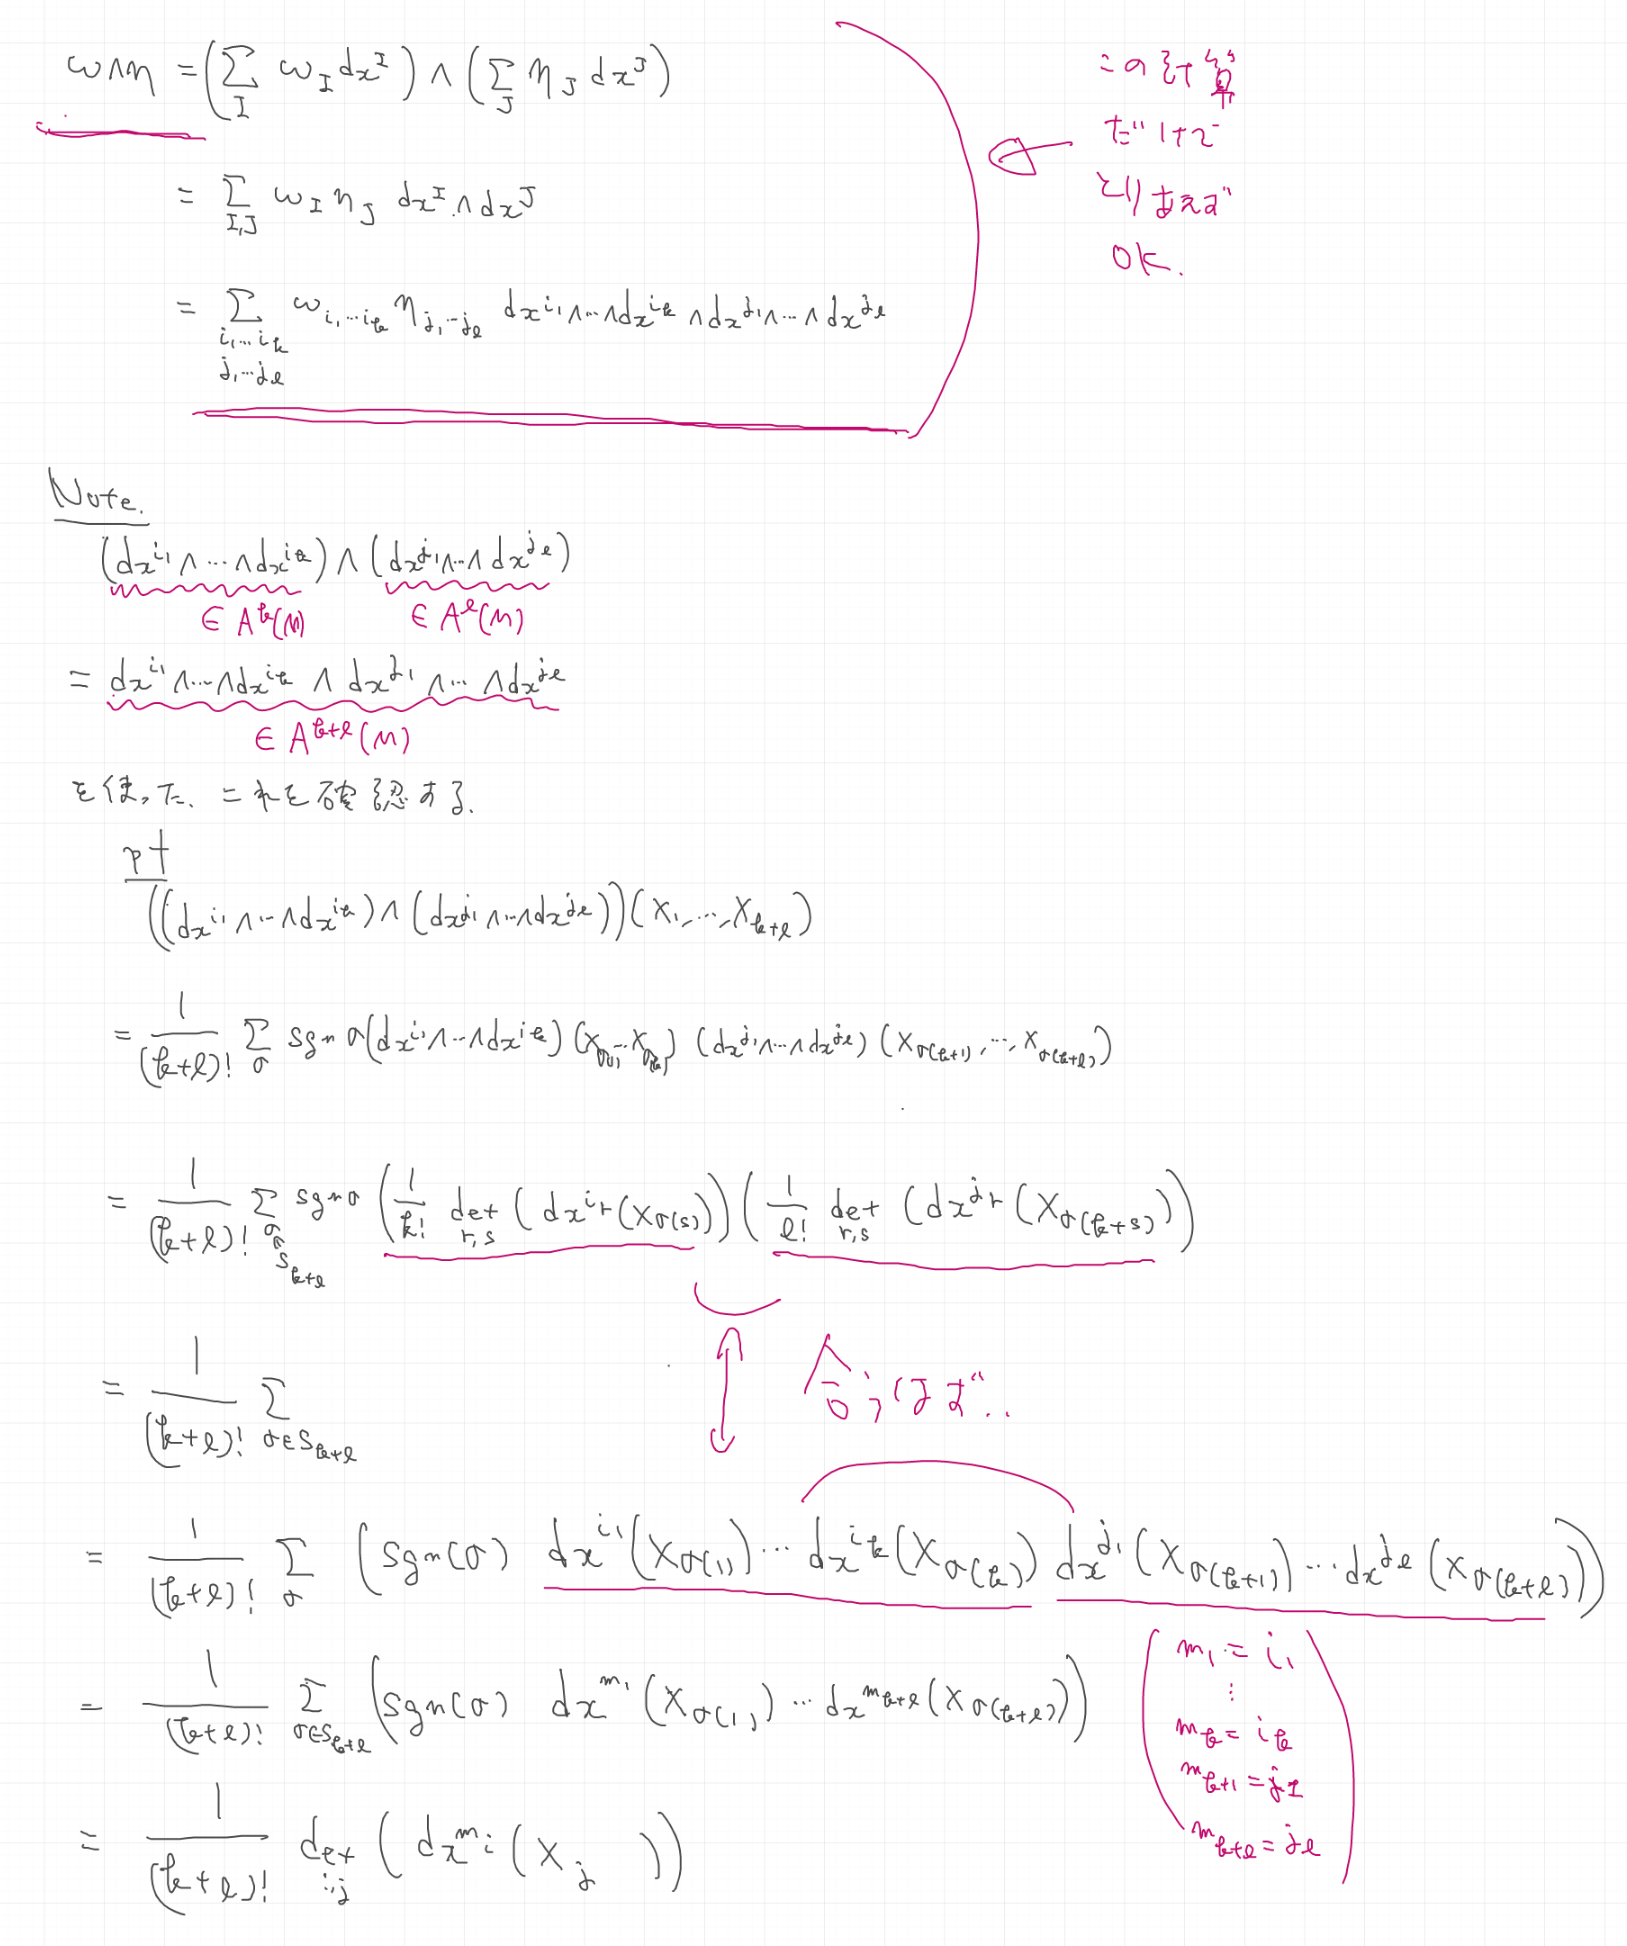 ω∧η = (∑_I ω_I dx^I) ∧ (∑_J η_J dx^J)
= ∑_{I,J} ω_I η_J dx^I ∧ dx^J
= ∑_{i_1…i_k j_1…j_l} ω_{i_1…i_k} η_{j_1…j_l} dx^{i_1}∧…∧dx^{i_k} ∧ dx^{j_1}∧…∧dx^{j_l}
この計算
だけで
とりあえず
OK.
Note.
(dx^{i_1}∧…∧dx^{i_k}) ∧ (dx^{j_1}∧…∧dx^{j_l})
∈ A^k(M) ∈ A^l(M)
= dx^{i_1}∧…∧dx^{i_k} ∧ dx^{j_1}∧…∧dx^{j_l}
∈ A^{k+l}(M)
を使った. これを確認する.
pf
((dx^{i_1}∧…∧dx^{i_k}) ∧ (dx^{j_1}∧…∧dx^{j_l}))(X_1,…,X_{k+l})
= 1/(k+l)! ∑_σ sgn σ (dx^{i_1}∧…∧dx^{i_k})(X_{σ(1)}…X_{σ(k)}) (dx^{j_1}∧…∧dx^{j_l})(X_{σ(k+1)},…,X_{σ(k+l)})
= 1/(k+l)! ∑_{σ∈S_{k+l}} sgn σ (1/k! det_{r,s} (dx^{i_r}(X_{σ(s)}))) (1/l! det_{r,s} (dx^{j_r}(X_{σ(k+s)})))
合うはず..
= 1/(k+l)! ∑_{σ∈S_{k+l}}
= 1/(k+l)! ∑_σ (sgn(σ) dx^{i_1}(X_{σ(1)})…dx^{i_k}(X_{σ(k)}) dx^{j_1}(X_{σ(k+1)})…dx^{j_l}(X_{σ(k+l)}))
= 1/(k+l)! ∑_{σ∈S_{k+l}} (sgn(σ) dx^{m_1}(X_{σ(1)})…dx^{m_{k+l}}(X_{σ(k+l)}))
(m_1 = i_1
⋮
m_k = i_k
m_{k+1} = j_1
m_{k+l} = j_l)
= 1/(k+l)! det_{i,j} (dx^{m_i}(X_j))